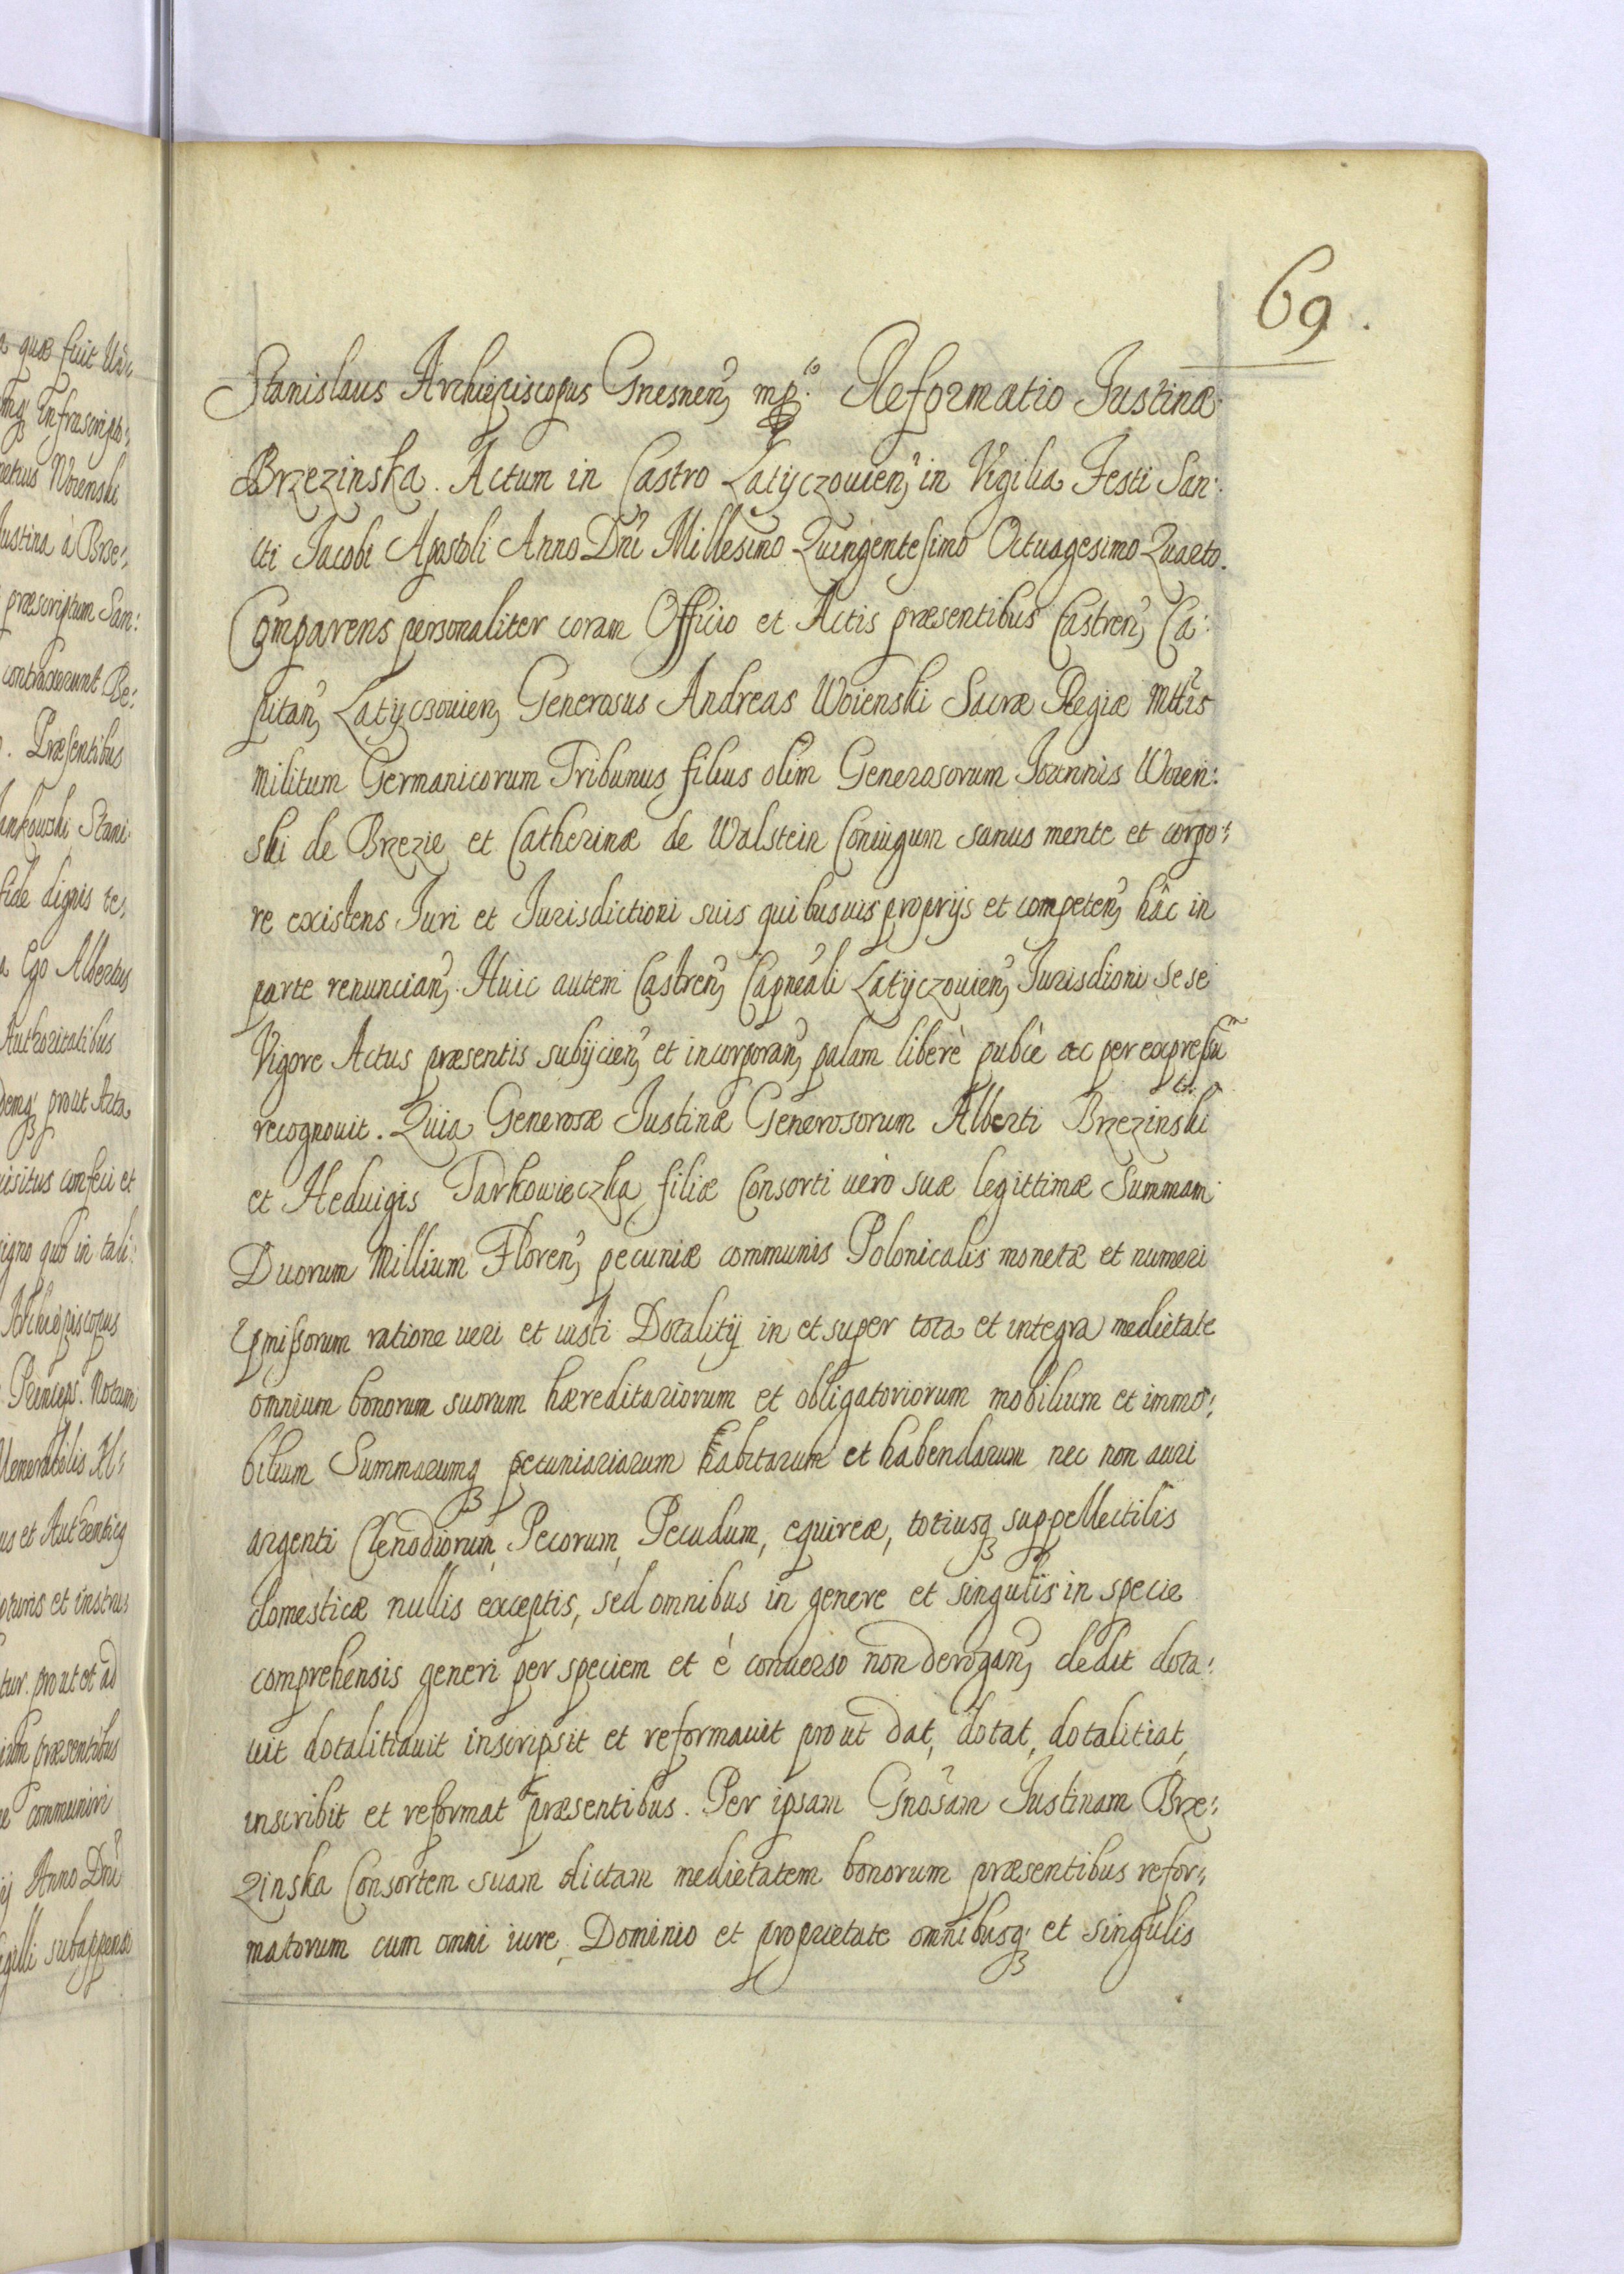 69.
Stanislaus Archiepiscopus Gnesnen, mp. Reformatio Justinæ
Brzezinska. Actum in Castro Latyczouien, in Vigilia Festi San:
cti Jacobi Apostoli Anno Dni Millesimo Quingentesimo Octuagesimo Quarto.
Comparens personaliter coram Officio et Actis præsentibus Castren, Ca:
pitan, Latyczouien, Generosus Andreas Woienski Sacræ Regiæ Mttis
militum Germanicorum Tribunus filius olim Generosorum Joannis Woien:
ski de Brzezie et Catherinæ de Walstein Coniugum sanus mente et corpo:
re existens Juri et Jurisdictioni suis quibusuis proprijs et competen, hâc in
parte renuncian, Huic autem Castren, Capneali Latyczouien, Jurisdioni sese
Vigore Actus præsentis subijcien, et incorporan, palam liberè publè ac per expressum
recognouit. Quia Generosæ Justinæ Generosorum Alberti Brzezinski
et Heduigis Tarkowieczka filiæ Consorti uerò suæ legittimæ Summam
Duorum Millium Floren, pecuniæ communis Polonicalis monetæ et numeri
pmissorum ratione ueri et iusti Dotalitij in et super tota et integra medietate
omnium bonorum suorum hæreditariorum et obligatoriorum mobilium et immo:
bilium Summarumq pecuniariarum habitarum et habendarum nec non auri
argenti Clenodiorum, Pecorum, Pecudum, equireæ, totiusq suppellectilis
domesticæ nullis exceptis, sed omnibus in genere et singulis in specie
comprehensis generi per speciem et è conuerso non derogan, dedit dota:
uit dotalitiauit inscripsit et reformauit prout dat, dotat, dotalitiat,
inscribit et reformat præsentibus. Per ipsam Gnosam Justinam Brze:
zinska Consortem suam dictam medietatem bonorum præsentibus refor:
matorum cum omni iure, Dominio et proprietate omnibusq et singulis